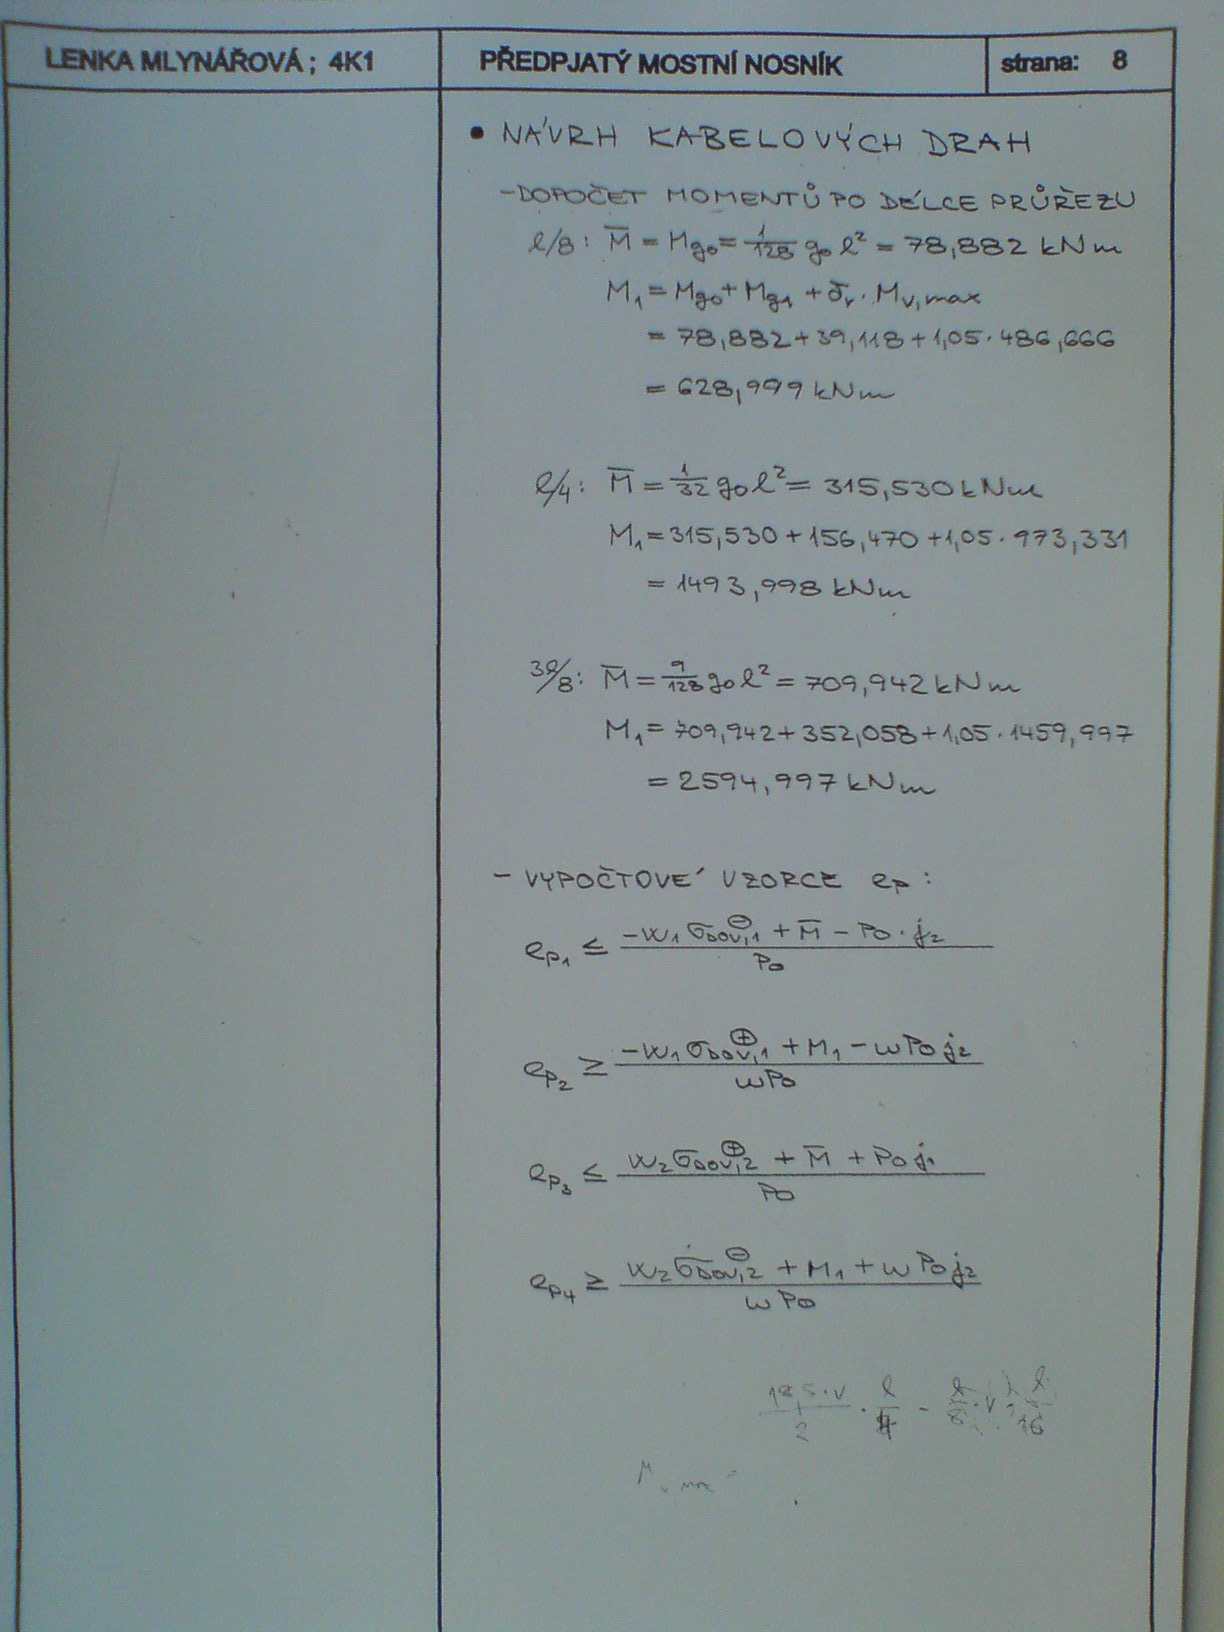 LENKA MLYNÁŘOVÁ; 4K1
PŘEDPJATÝ MOSTNÍ NOSNÍK
strana: 8
• NÁVRH KABELOVÝCH DRAH
- DOPOČET MOMENTŮ PO DÉLCE PRŮŘEZU
l/8: M̅ = Mg₀ = 1/128 g₀ l² = 78,882 kNm
M₁ = Mg₀ + Mg₁ + δᵣ · Mv,max
= 78,882 + 39,118 + 1,05 · 486,666
= 628,999 kNm
l/4: M̅ = 1/32 g₀ l² = 315,530 kNm
M₁ = 315,530 + 156,470 + 1,05 · 973,331
= 1493,998 kNm
3l/8: M̅ = 9/128 g₀ l² = 709,942 kNm
M₁ = 709,942 + 352,058 + 1,05 · 1459,997
= 2594,997 kNm
- VÝPOČTOVÉ VZORCE eₚ:
eₚ₁ ≤ (-W₁ σ⊖DOV,1 + M̅ - P₀ · j₂) / P₀
eₚ₂ ≥ (-W₁ σ⊕DOV,1 + M₁ - ωP₀ j₂) / ωP₀
eₚ₃ ≤ (W₂ σ⊕DOV,2 + M̅ + P₀ j₁) / P₀
eₚ₄ ≥ (W₂ σ⊖DOV,2 + M₁ + ωP₀ j₂) / ωP₀